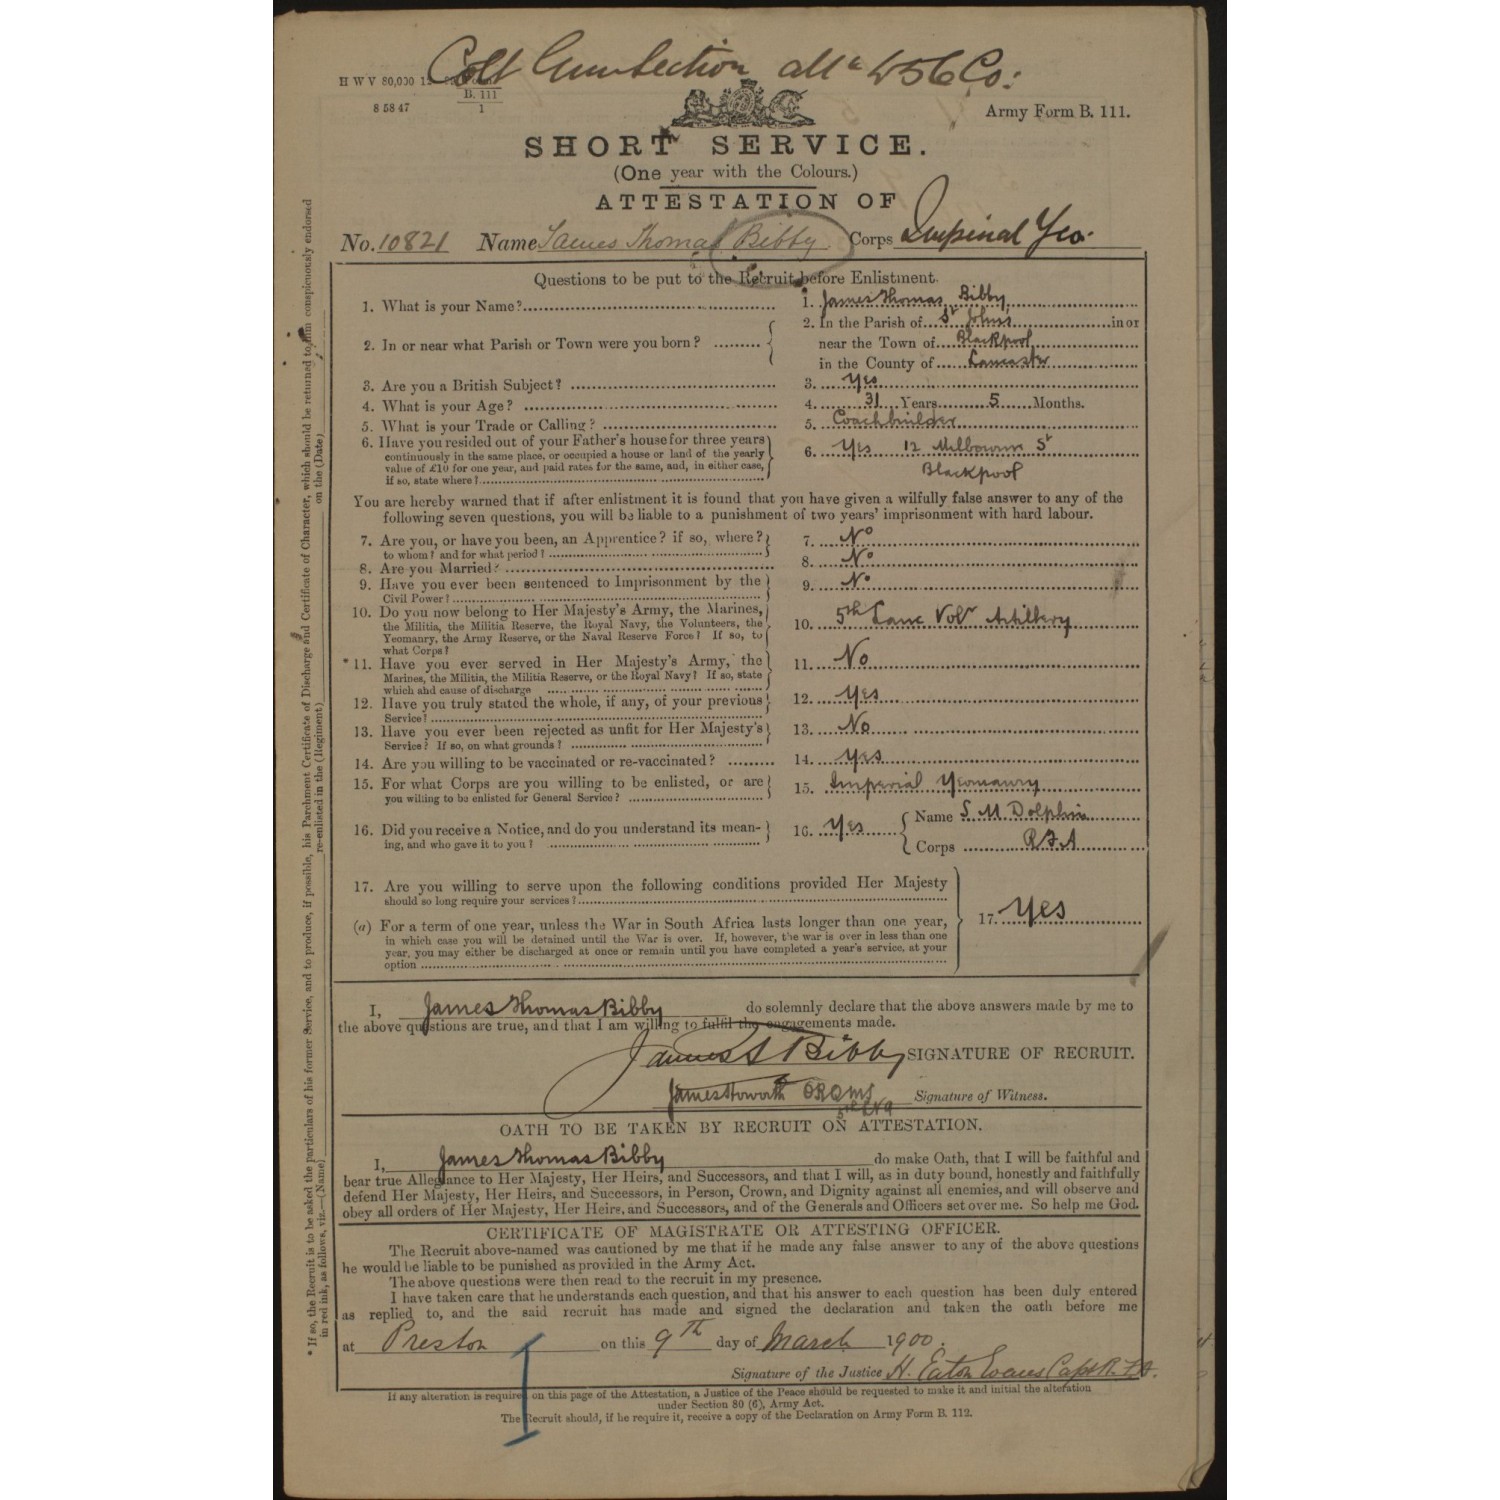 Colt Gun Section
H W V 80,000
B. 111
8 58 47 1
Army Form B. 111.
SHORT SERVICE.
(One year with the Colours.)
ATTESTATION OF
No. 10821 Name James Thomas Bibby Corps Imperial Yeo.
Questions to be put to the Recruit before Enlistment.
1. What is your Name? 1. James Thomas Bibby
2. In or near what Parish or Town were you born? 2. In the Parish of St Johns in or
near the Town of Blackpool
in the County of Lancaster
3. Are you a British Subject? 3. Yes
4. What is your Age? 4. 31 Years 5 Months.
5. What is your Trade or Calling? 5. Coachbuilder
6. Have you resided out of your Father's house for three years 6. Yes 12 Milbourn St
continuously in the same place, or occupied a house or land of the yearly Blackpool
value of £10 for one year, and paid rates for the same, and, in either case,
if so, state where?
You are hereby warned that if after enlistment it is found that you have given a wilfully false answer to any of the
following seven questions, you will be liable to a punishment of two years' imprisonment with hard labour.
7. Are you, or have you been, an Apprentice? if so, where? 7. No
to whom? and for what period?
8. Are you Married? 8. No
9. Have you ever been sentenced to Imprisonment by the 9. No
Civil Power?
10. Do you now belong to Her Majesty's Army, the Marines, 10. 5th Lanc Volr Artillery
the Militia, the Militia Reserve, the Royal Navy, the Volunteers, the
Yeomanry, the Army Reserve, or the Naval Reserve Force? If so, to
what Corps?
* 11. Have you ever served in Her Majesty's Army, the 11. No
Marines, the Militia, the Militia Reserve, or the Royal Navy? If so, state
which and cause of discharge
12. Have you truly stated the whole, if any, of your previous 12. Yes
Service?
13. Have you ever been rejected as unfit for Her Majesty's 13. No
Service? If so, on what grounds?
14. Are you willing to be vaccinated or re-vaccinated? 14. Yes
15. For what Corps are you willing to be enlisted, or are 15. Imperial Yeomanry
you willing to be enlisted for General Service?
16. Did you receive a Notice, and do you understand its mean- 16. Yes Name S. M. Dolphin
ing, and who gave it to you? Corps R F A
17. Are you willing to serve upon the following conditions provided Her Majesty
should so long require your services?
(a) For a term of one year, unless the War in South Africa lasts longer than one year, 17. Yes
in which case you will be detained until the War is over. If, however, the war is over in less than one
year, you may either be discharged at once or remain until you have completed a year's service, at your
option
I, James Thomas Bibby do solemnly declare that the above answers made by me to
the above questions are true, and that I am willing to fulfil the engagements made.
James T Bibby SIGNATURE OF RECRUIT.
James Howorth ORQMS Signature of Witness.
5th LVA
OATH TO BE TAKEN BY RECRUIT ON ATTESTATION.
I, James Thomas Bibby do make Oath, that I will be faithful and
bear true Allegiance to Her Majesty, Her Heirs, and Successors, and that I will, as in duty bound, honestly and faithfully
defend Her Majesty, Her Heirs, and Successors, in Person, Crown, and Dignity against all enemies, and will observe and
obey all orders of Her Majesty, Her Heirs, and Successors, and of the Generals and Officers set over me. So help me God.
CERTIFICATE OF MAGISTRATE OR ATTESTING OFFICER.
The Recruit above-named was cautioned by me that if he made any false answer to any of the above questions
he would be liable to be punished as provided in the Army Act.
The above questions were then read to the recruit in my presence.
I have taken care that he understands each question, and that his answer to each question has been duly entered
as replied to, and the said recruit has made and signed the declaration and taken the oath before me
at Preston on this 9th day of March 1900.
Signature of the Justice H. Eaton Evans Capt R.F.A.
If any alteration is required on this page of the Attestation, a Justice of the Peace should be requested to make it and initial the alteration
under Section 80 (6), Army Act.
The Recruit should, if he require it, receive a copy of the Declaration on Army Form B. 112.
* If so, the Recruit is to be asked the particulars of his former Service, and to produce, if possible, his Parchment Certificate of Discharge and Certificate of Character, which should be returned to him conspicuously endorsed
in red ink, as follows, viz.—(Name) re-enlisted in the (Regiment) on the (Date)